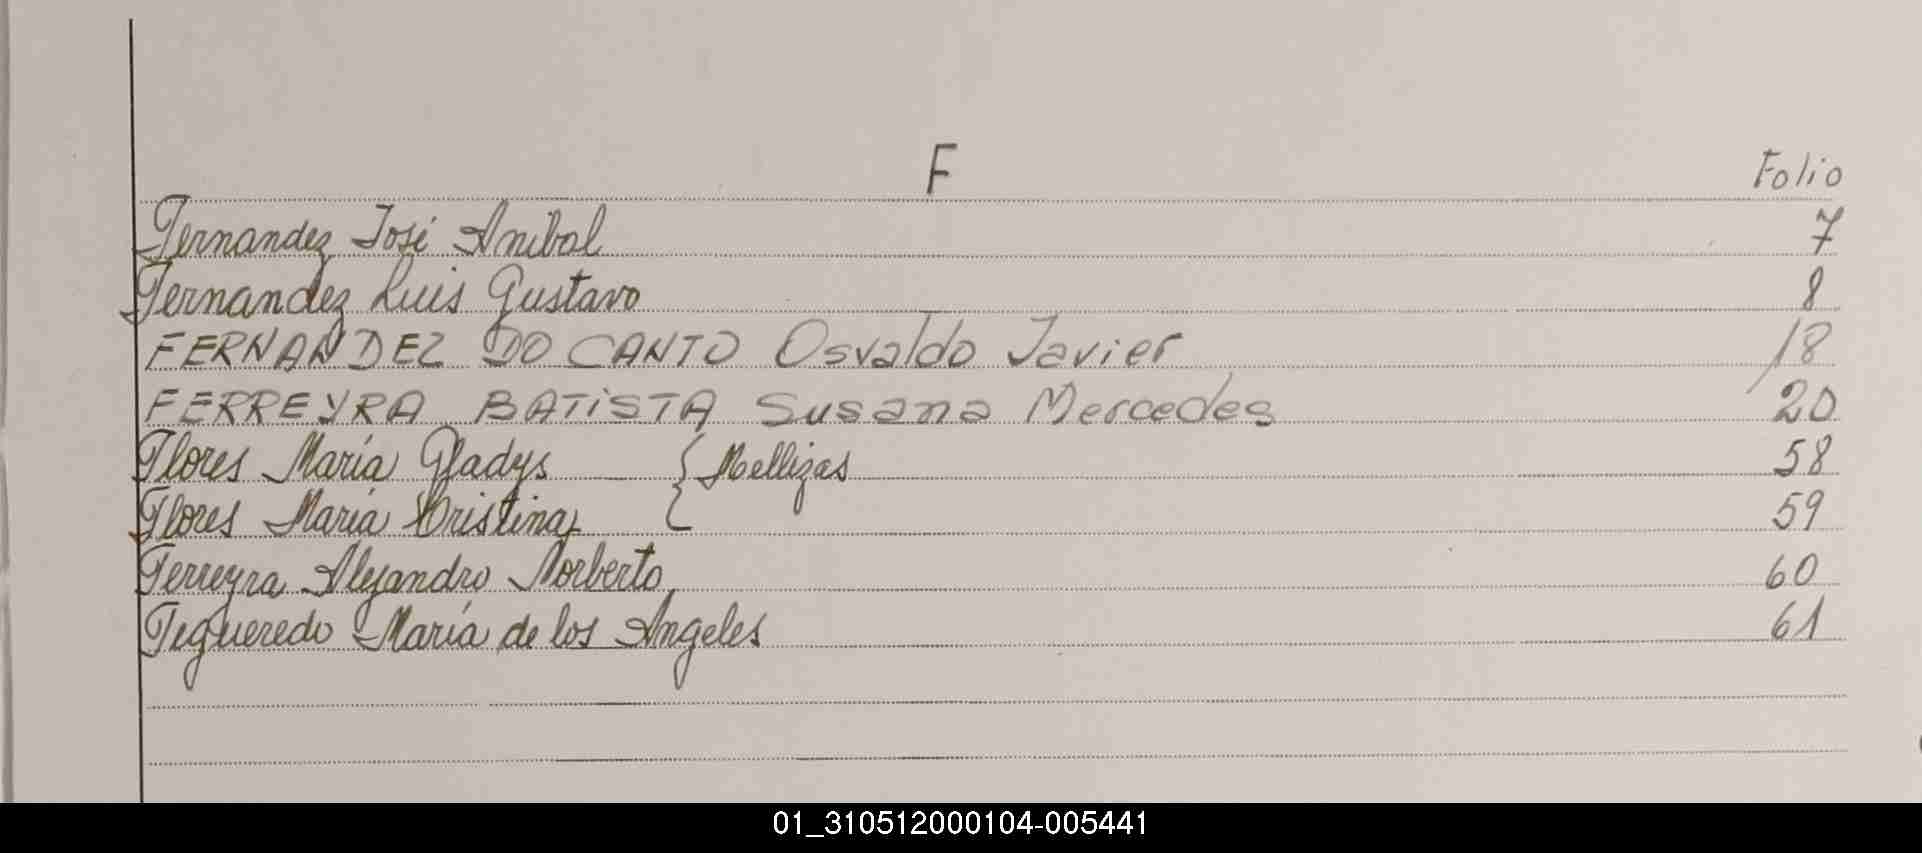 F Folio
Fernandez José Anibal 7
Fernandez Luis Gustavo 8
FERNANDEZ DO CANTO Osvaldo Javier 18
FERREYRA BATiSTA Susana Mercedes 20
Flores María Gladys { Mellizas 58
Flores María Cristina 59
Ferreyra Alejandro Norberto 60
Figueredo María de los Angeles 61
01_310512000104-005441